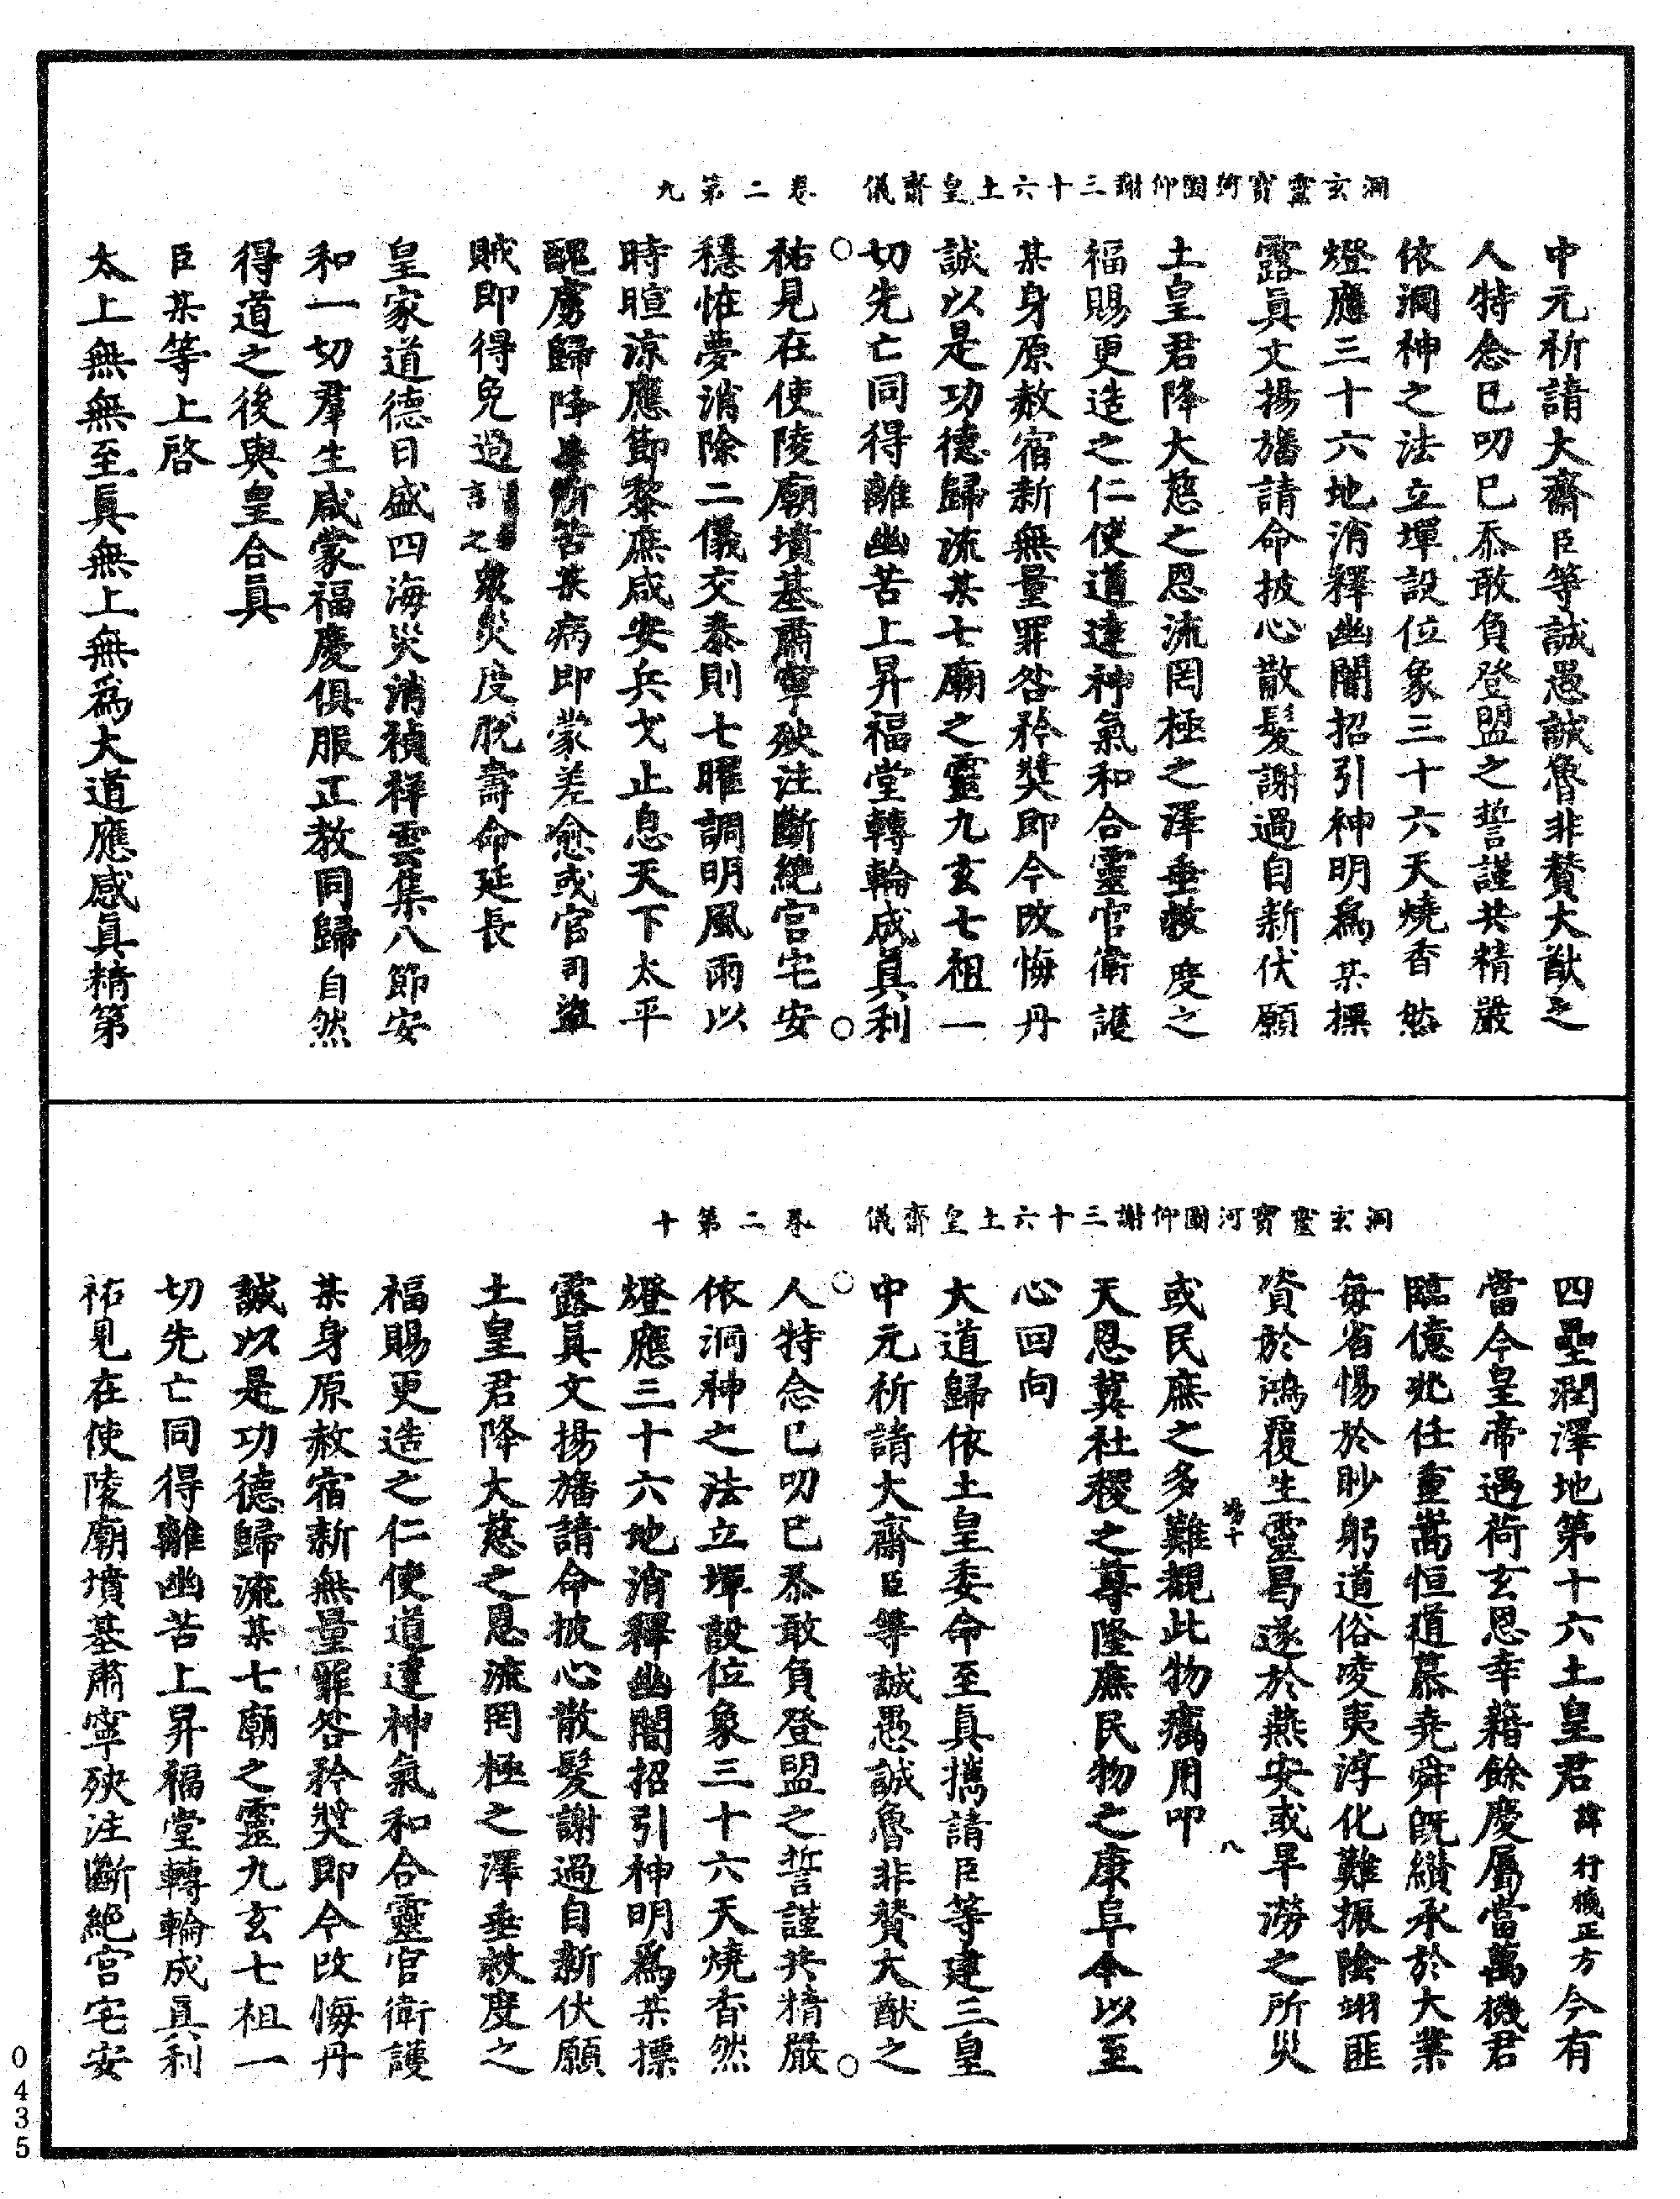 洞玄靈寶河圖仰謝三十六土皇齋儀　卷二第九
中元祈請大齋臣等誠愚誠魯非贊大猷之
人特念已叨已忝敢負登盟之誓謹共精嚴
依洞神之法立墠設位象三十六天燒香然
燈應三十六地消釋幽闇招引神明為某摽
露真文揚旛請命披心散髮謝過自新伏願
土皇君降大慈之恩流罔極之澤垂救度之
福賜更造之仁使道達神氣和合靈官衛護
某身原赦宿新無量罪咎矜獎即令改悔丹
誠以是功德歸流某七廟之靈九玄七祖一
切先亡同得離幽苦上昇福堂轉輪成真利
祐見在使陵廟墳基肅寧殃注斷絕宮宅安
穩恠夢消除二儀交泰則七曜調明風雨以
時暄涼應節黎庶咸安兵戈止息天下太平
醜虜歸降所苦某病即蒙差愈或官司盜
賊即得免過言之眾災度脫壽命延長
皇家道德日盛四海災消禎祥雲集八節安
和一切羣生咸蒙福慶俱服正教同歸自然
得道之後與皇合真
臣某等上啓
太上無無至真無上無為大道應感真精第
洞玄靈寶河圖仰謝三十六土皇齋儀　卷二第十
四壘潤澤地第十六土皇君諱行機正方今有
當今皇帝遇荷玄恩幸藉餘慶屬當萬機君
臨億兆任重嵩恒道慕堯舜旣纘承於大業
每省惕於眇躬道俗凌夷淳化難振陰翊匪
資於鴻覆生靈曷遂於燕安或旱澇之所災
場十　八
或民庶之多難覩此物癘用叩
天恩冀社稷之尊隆庶民物之康阜本以至
心回向
大道歸依土皇委命至真攜請臣等建三皇
中元祈請大齋臣等誠愚誠魯非贊大猷之
人特念已叨已忝敢負登盟之誓謹共精嚴
依洞神之法立墠設位象三十六天燒香然
燈應三十六地消釋幽闇招引神明為某摽
露真文揚旛請命披心散髮謝過自新伏願
土皇君降大慈之恩流罔極之澤垂救度之
福賜更造之仁使道達神氣和合靈官衛護
某身原赦宿新無量罪咎矜獎即令改悔丹
誠以是功德歸流某七廟之靈九玄七祖一
切先亡同得離幽苦上昇福堂轉輪成真利
祐見在使陵廟墳基肅寧殃注斷絕宮宅安
0435